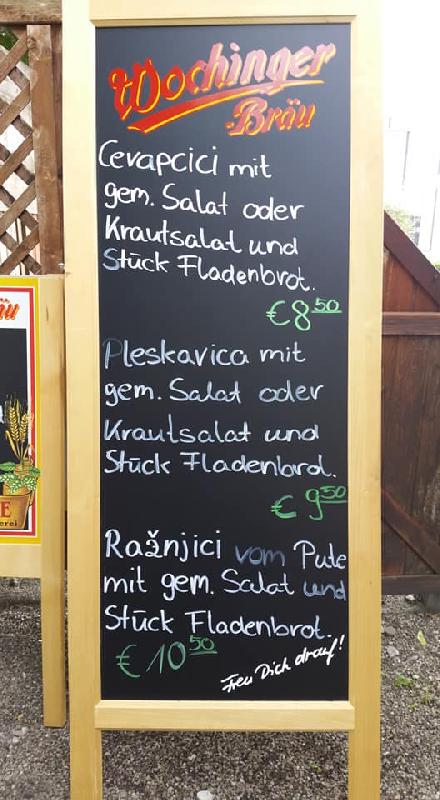 Wochinger
Bräu
Cevapcici mit
gem. Salat oder
Krautsalat und
Stück Fladenbrot.
€ 8 50
Pleskavica mit
gem. Salat oder
Krautsalat und
Stück Fladenbrot.
€ 9 50
Ražnjici vom Pute
mit gem. Salat und
Stück Fladenbrot.
€ 10 50
Freu Dich drauf!